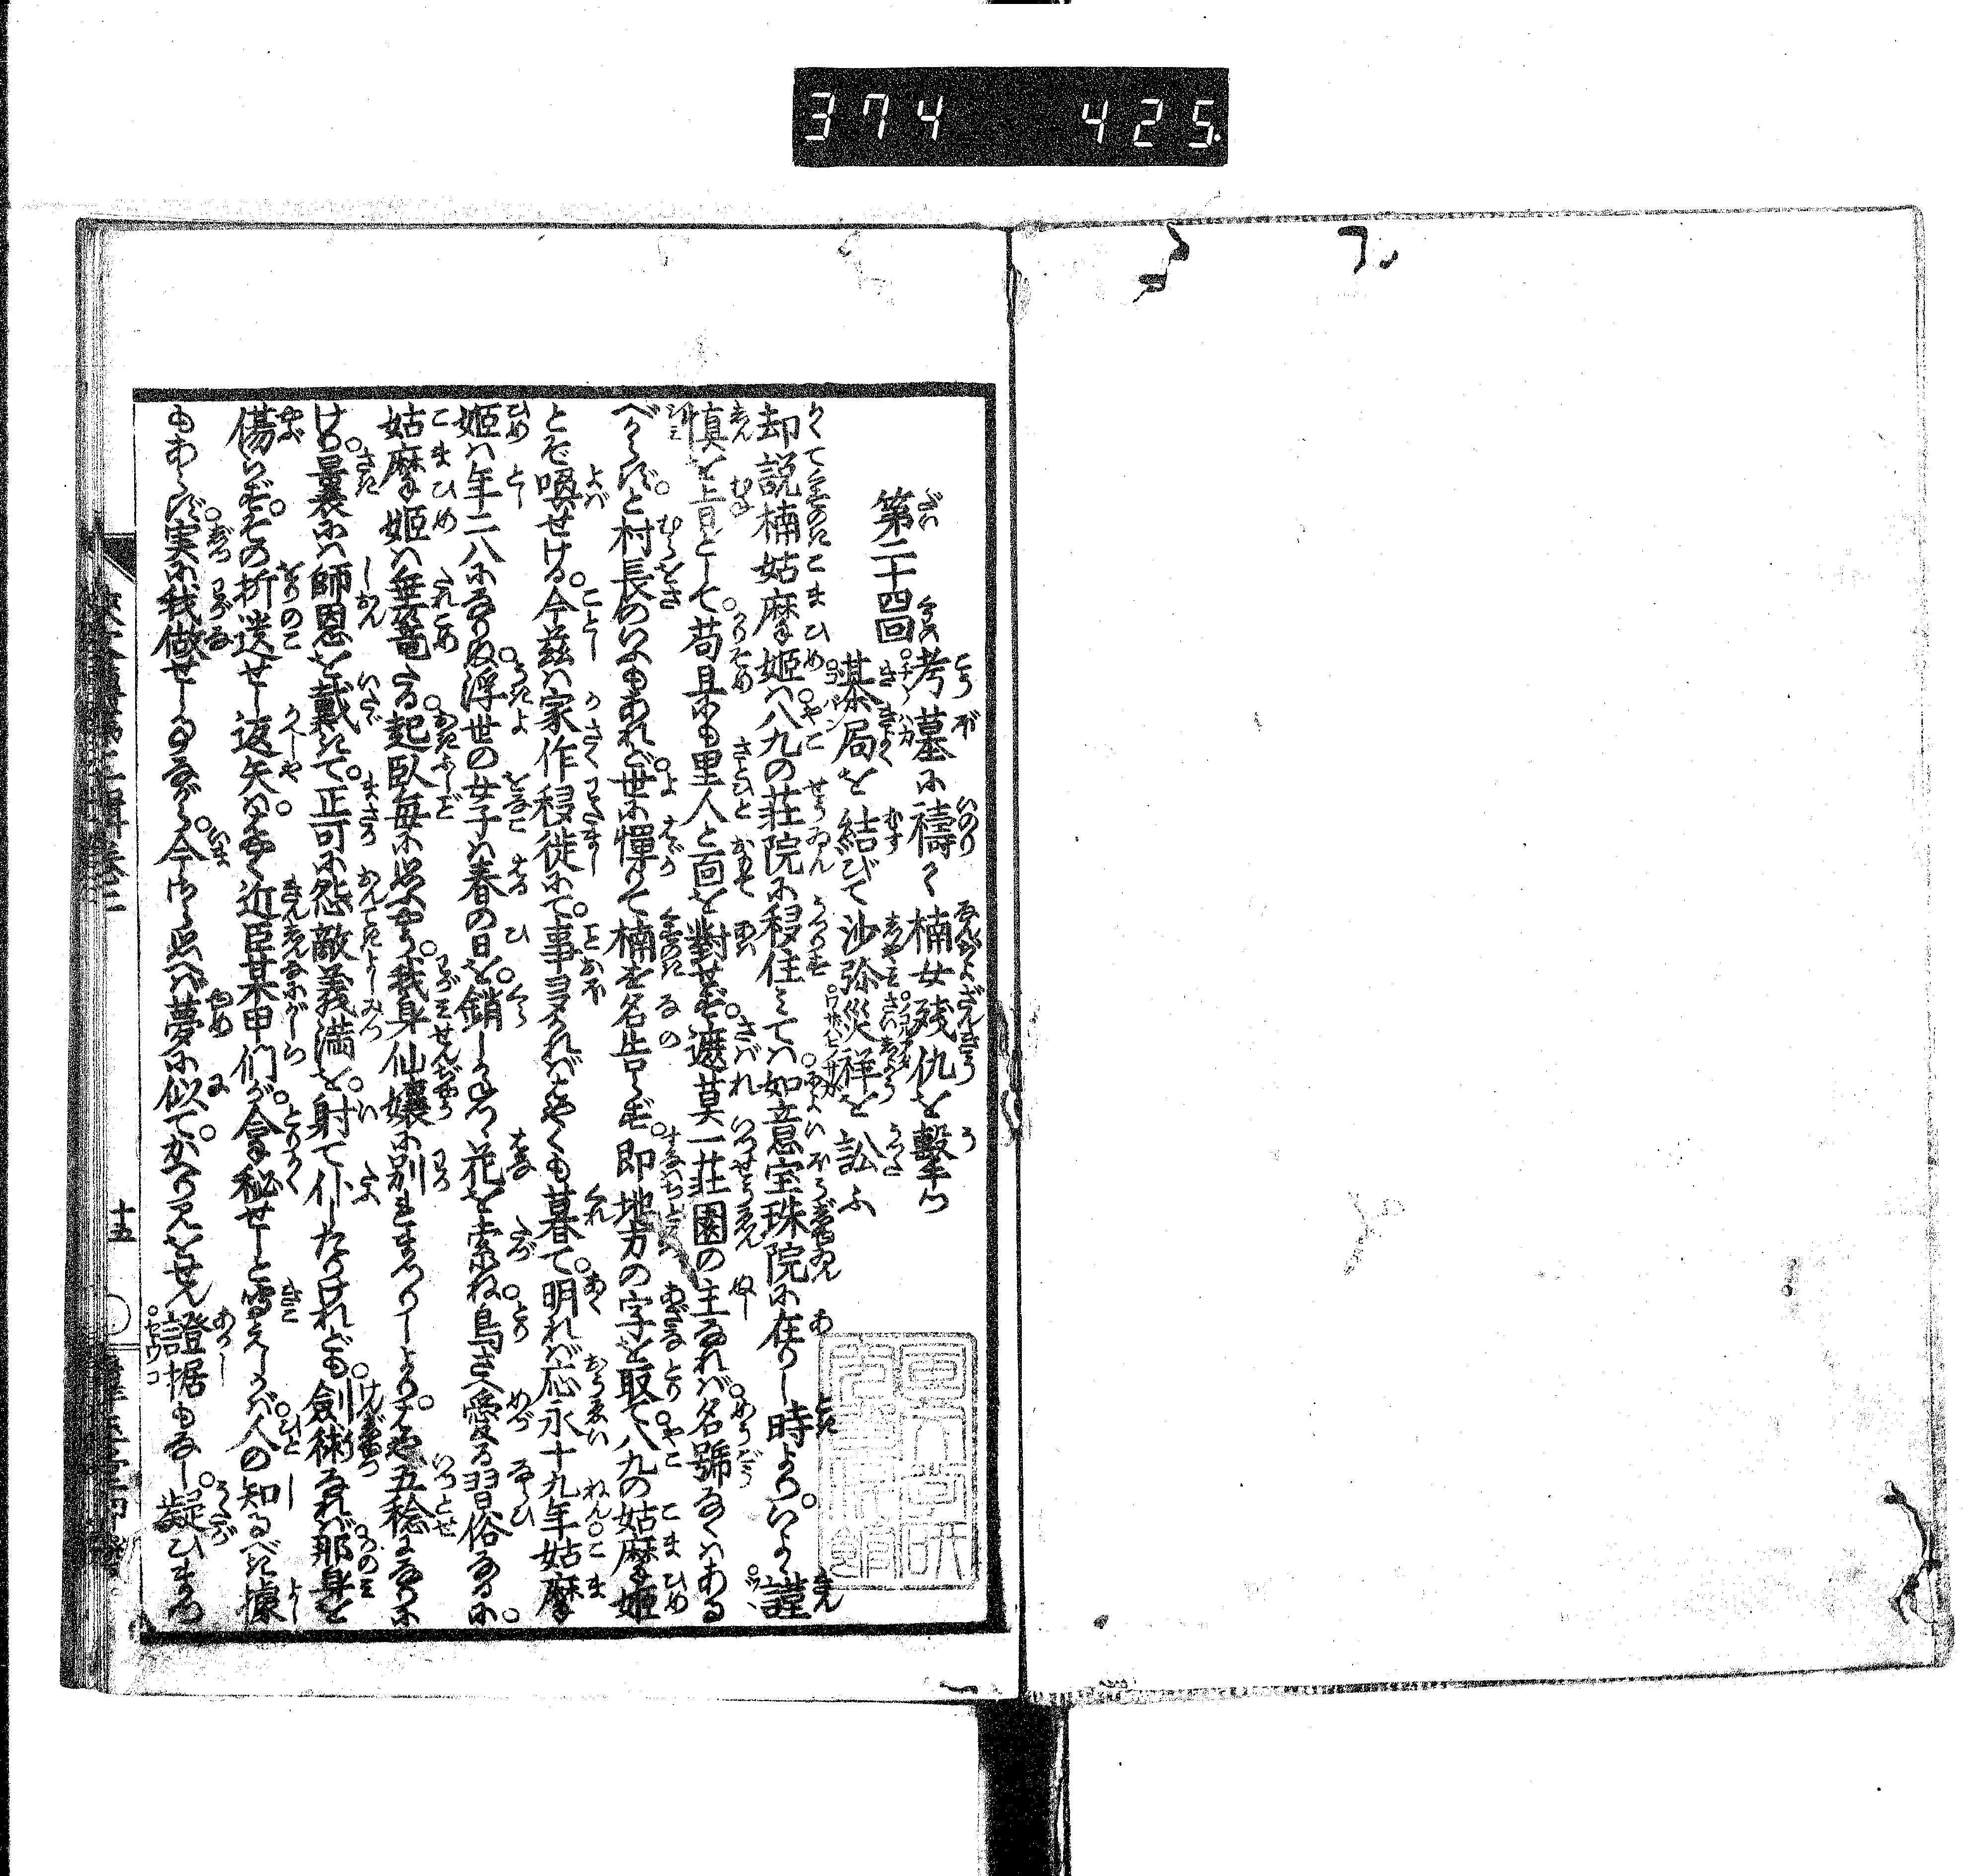 374 425
第二十四回
考墓に禱りく楠女残仇を撃つ
棊局を結びて沙弥災祥を訟ふ
却説楠姑摩姫ハ八九の荘院に移住してハ如意宝珠院に在りし時より。いよく謹
慎を上目として。苟且にも里人と面を對せず。遮莫一荘園の主なれバ。名號なくハある
べからずと村長のいふもあれど。世に憚りて楠を名告らず。即地方の字を取て八九の姑摩姫
とぞ喚せける。今茲ハ家作移徙にて。事多かれバはやくも暮て。明れバ応永十九年姑摩
姫ハ年二八になりぬ。浮世の女子ハ春の日を。銷しかねつゝ花を索ね。鳥さへ愛る習俗なるに。
姑摩姫ハ垂籠たる。起臥毎に思ふやう。我身仙嬢に別れまつりしより。はや五稔になりに
けり。曩にハ師恩を戴きて。正可に怨敵義満を。射て仆したりけれども。劍術なれバ。那身を
傷らず。その折遺せし返矢ハ。近臣某甲們が。拿秘せしと聞えしかバ。人の知るべき據
もあらず。実に我做せしるながら。今はた思へバ夢に似て。かへり見をせん證据もなし。疑ひまつ
十五